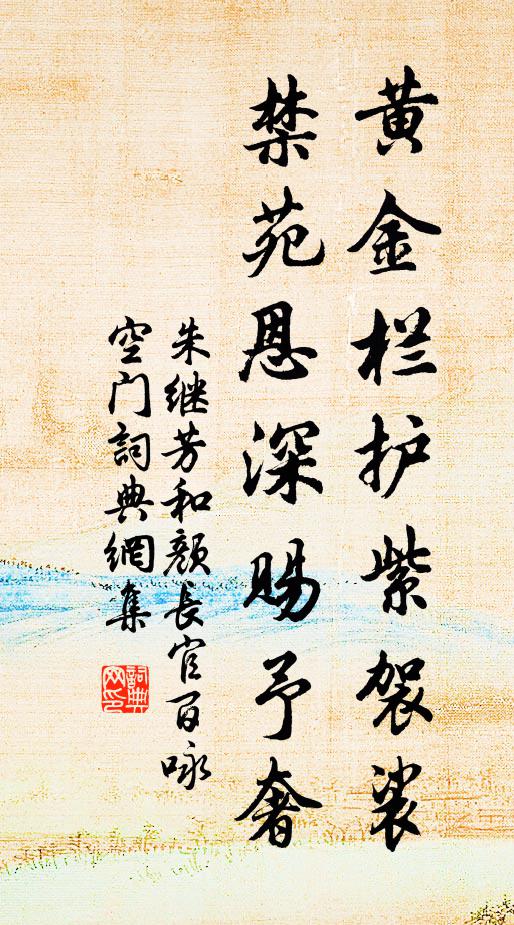 黄金栏护紫袈裟
禁苑恩深赐予奢
朱继芳和颜长官百咏
空门詞典網集
詞典网印